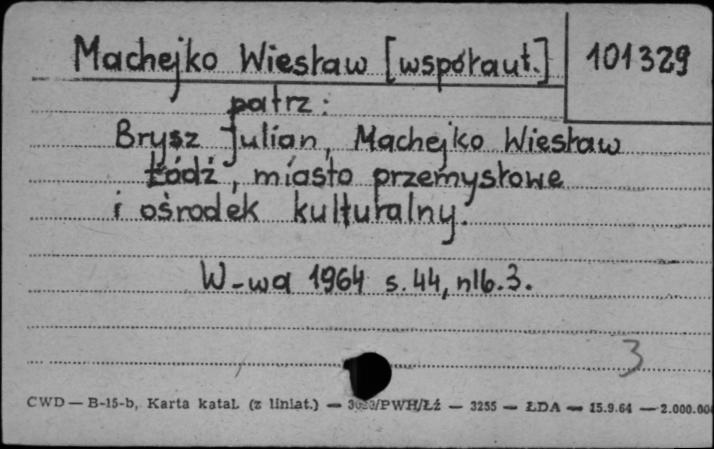 Machejko Wiesław [współaut.] 101329
patrz:
Brysz Julian, Machejko Wiesław
Łódź, miasto przemysłowe
i ośrodek kulturalny.
W-wa 1964 s. 44, nlb. 3.
3
CWD — B-15-b, Karta katal. (z liniat.) — /PWH/Łź — 3255 — ŁDA — 15.9.64 — 2.000.00